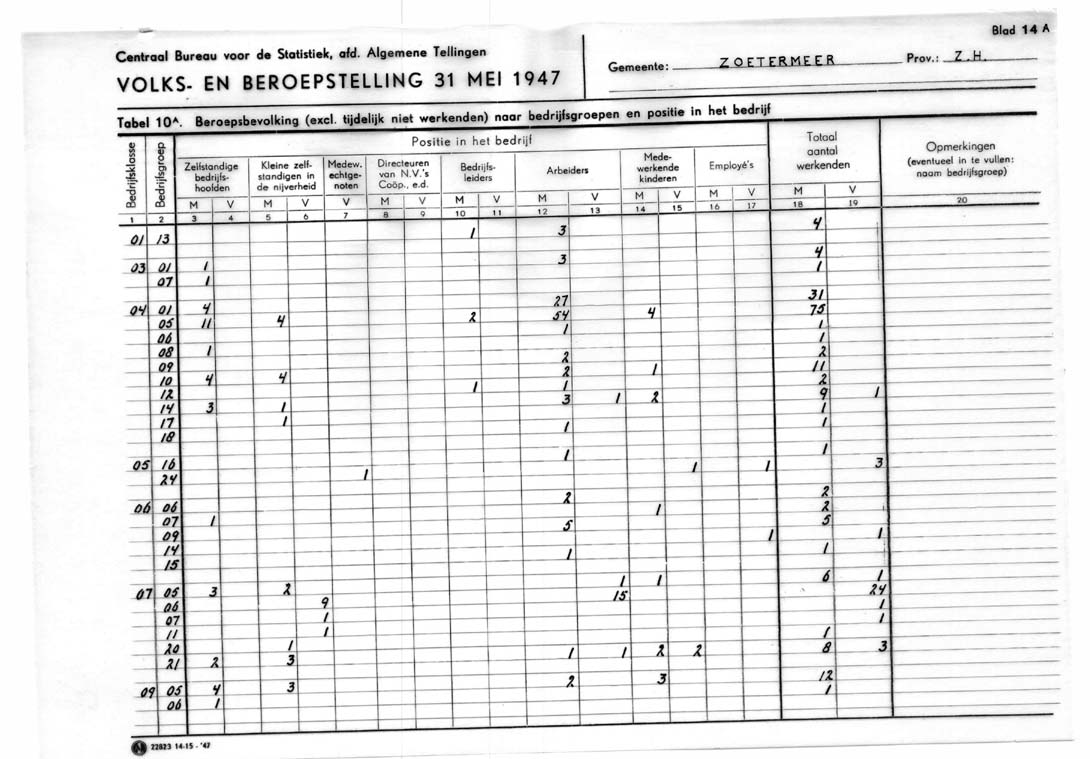 Blad 14 A
Centraal Bureau voor de Statistiek, afd. Algemene Tellingen
VOLKS- EN BEROEPSTELLING 31 MEI 1947
Gemeente: ZOETERMEER Prov.: Z.H.
Tabel 10A. Beroepsbevolking (excl. tijdelijk niet werkenden) naar bedrijfsgroepen en positie in het bedrijf
Bedrijfsklasse
Bedrijfsgroep
Positie in het bedrijf
Zelfstandige
bedrijfs-
hoofden
Kleine zelf-
standigen in
de nijverheid
Medew.
echtge-
noten
Directeuren
van N.V.'s
Coöp., e.d.
Bedrijfs-
leiders
Arbeiders
Mede-
werkende
kinderen
Employé's
Totaal
aantal
werkenden
Opmerkingen
(eventueel in te vullen:
naam bedrijfsgroep)
M V M V V M V M V M V M V M V M V
1 2 3 4 5 6 7 8 9 10 11 12 13 14 15 16 17 18 19 20
01 13 1 3 4
03 01 1 3 4
07 1 1
04 01 4 27 31
05 11 4 2 54 4 75
06 1 1
08 1 1
09 2 2
10 4 4 2 1 11
12 1 1 2
14 3 1 3 1 2 9 1
17 1 1
18 1 1
05 16 1 1
24 1 1 1 3
06 06 2 2
07 1 1 2
09 5 5
14 1 1
15 1 1
07 05 3 2 1 1 6 1
06 9 15 24
07 1 1
11 1 1
20 1 1
21 2 3 1 1 2 2 8 3
09 05 4 3 2 3 12
06 1 1
22823 14-15 - '47